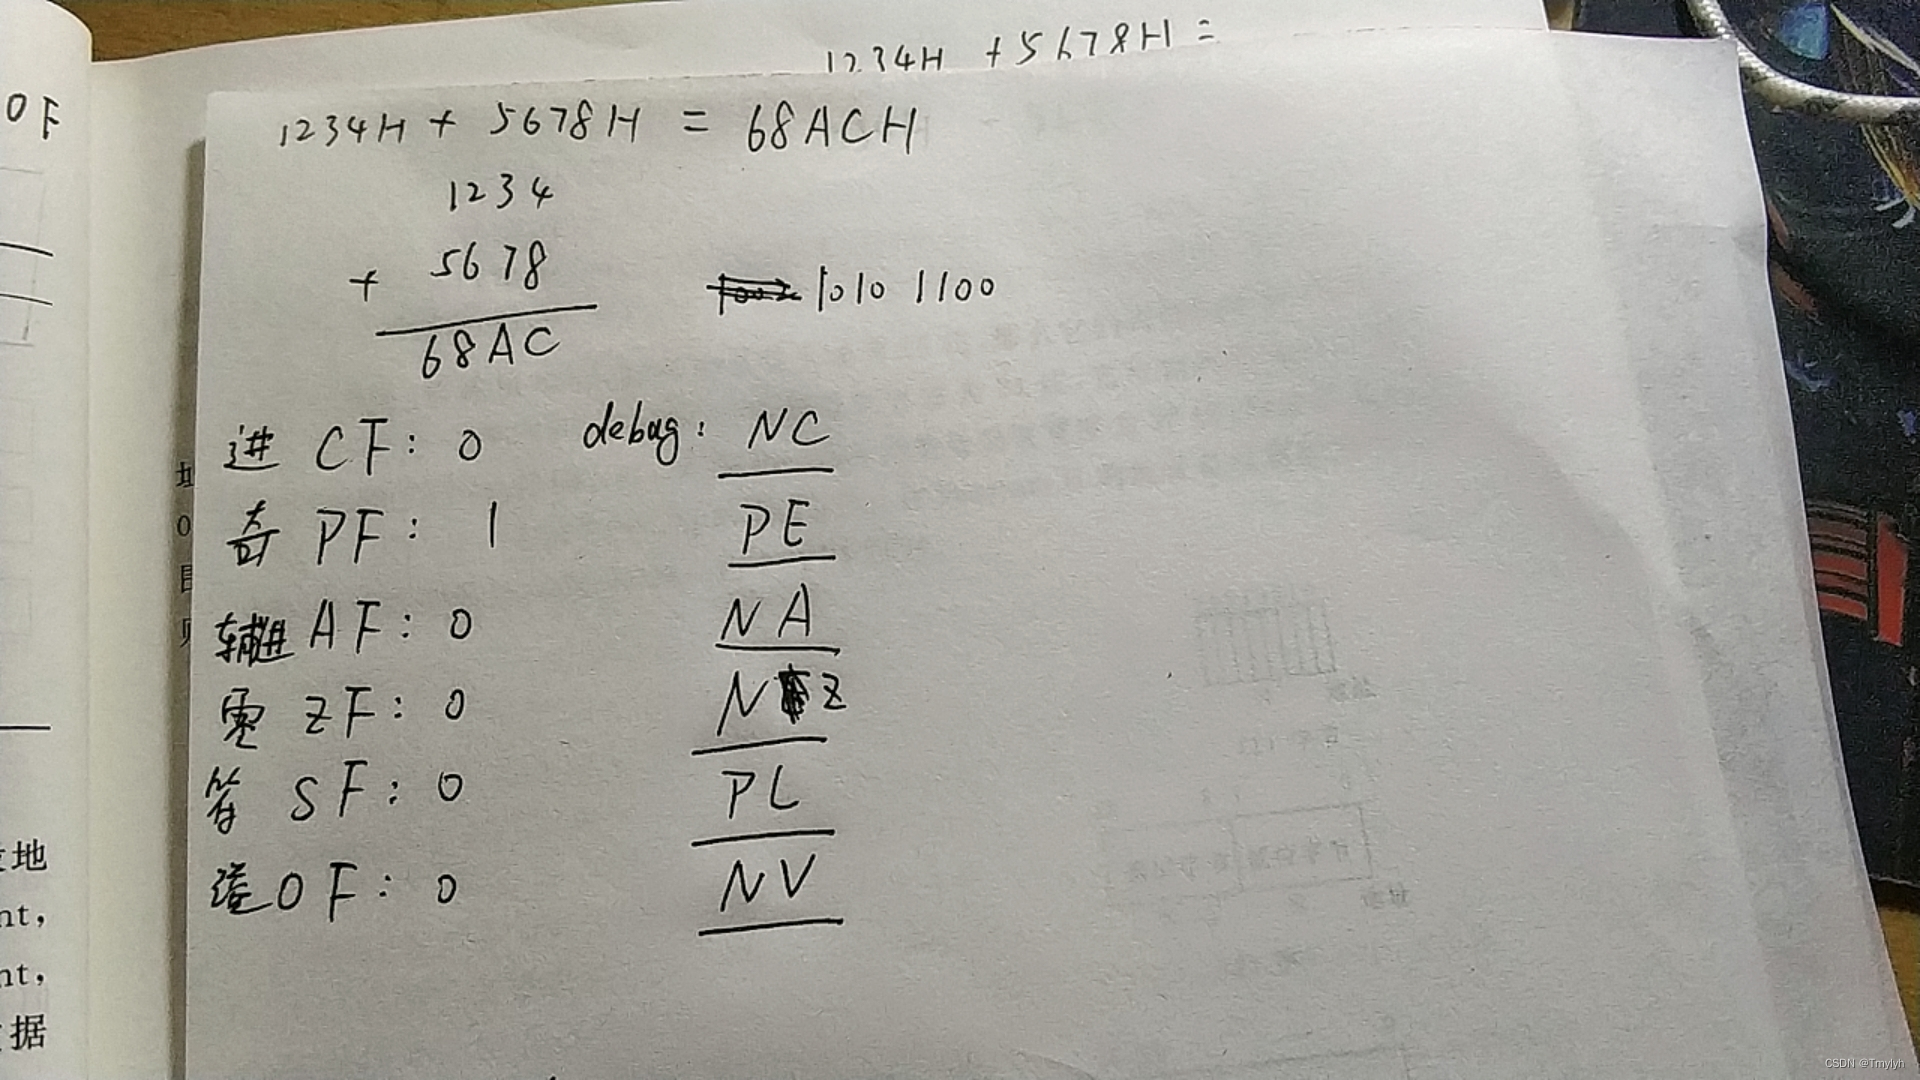 1234H + 5678H =
OF
1234H + 5678H = 68ACH
1234
+ 5678
1010 1100
68AC
进 CF: 0 debug: NC
奇 PF: 1 PE
辅进 AF: 0 NA
零 ZF: 0 NZ
符 SF: 0 PL
溢 OF: 0 NV
地
nt,
nt,
据
CSDN @Tmylyh